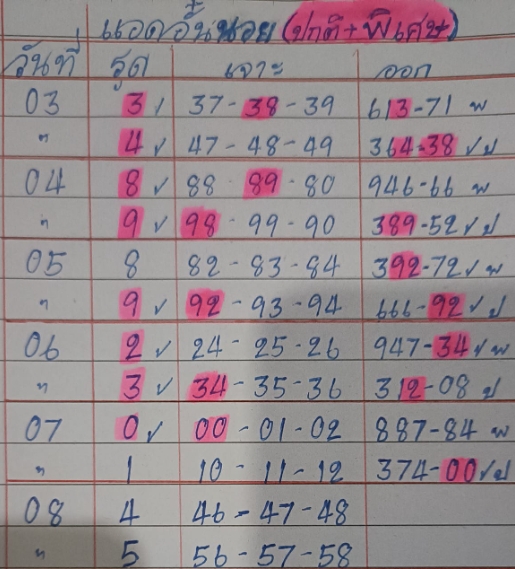 แอดอั้นนอย (ปกติ+พิเศษ)
วันที่ รูด เจาะ ออก
03 3 ✓ 37-38-39 613-71 พ
" 4 ✓ 47-48-49 364-38 ✓ ป
04 8 ✓ 88-89-80 946-66 พ
" 9 ✓ 98-99-90 389-52 ✓ ป
05 8 82-83-84 392-72 ✓ พ
" 9 ✓ 92-93-94 666-92 ✓ ป
06 2 ✓ 24-25-26 947-34 ✓ พ
" 3 ✓ 34-35-36 312-08 ป
07 0 ✓ 00-01-02 887-84 พ
" 1 10-11-12 374-00 ✓ ป
08 4 46-47-48
" 5 56-57-58